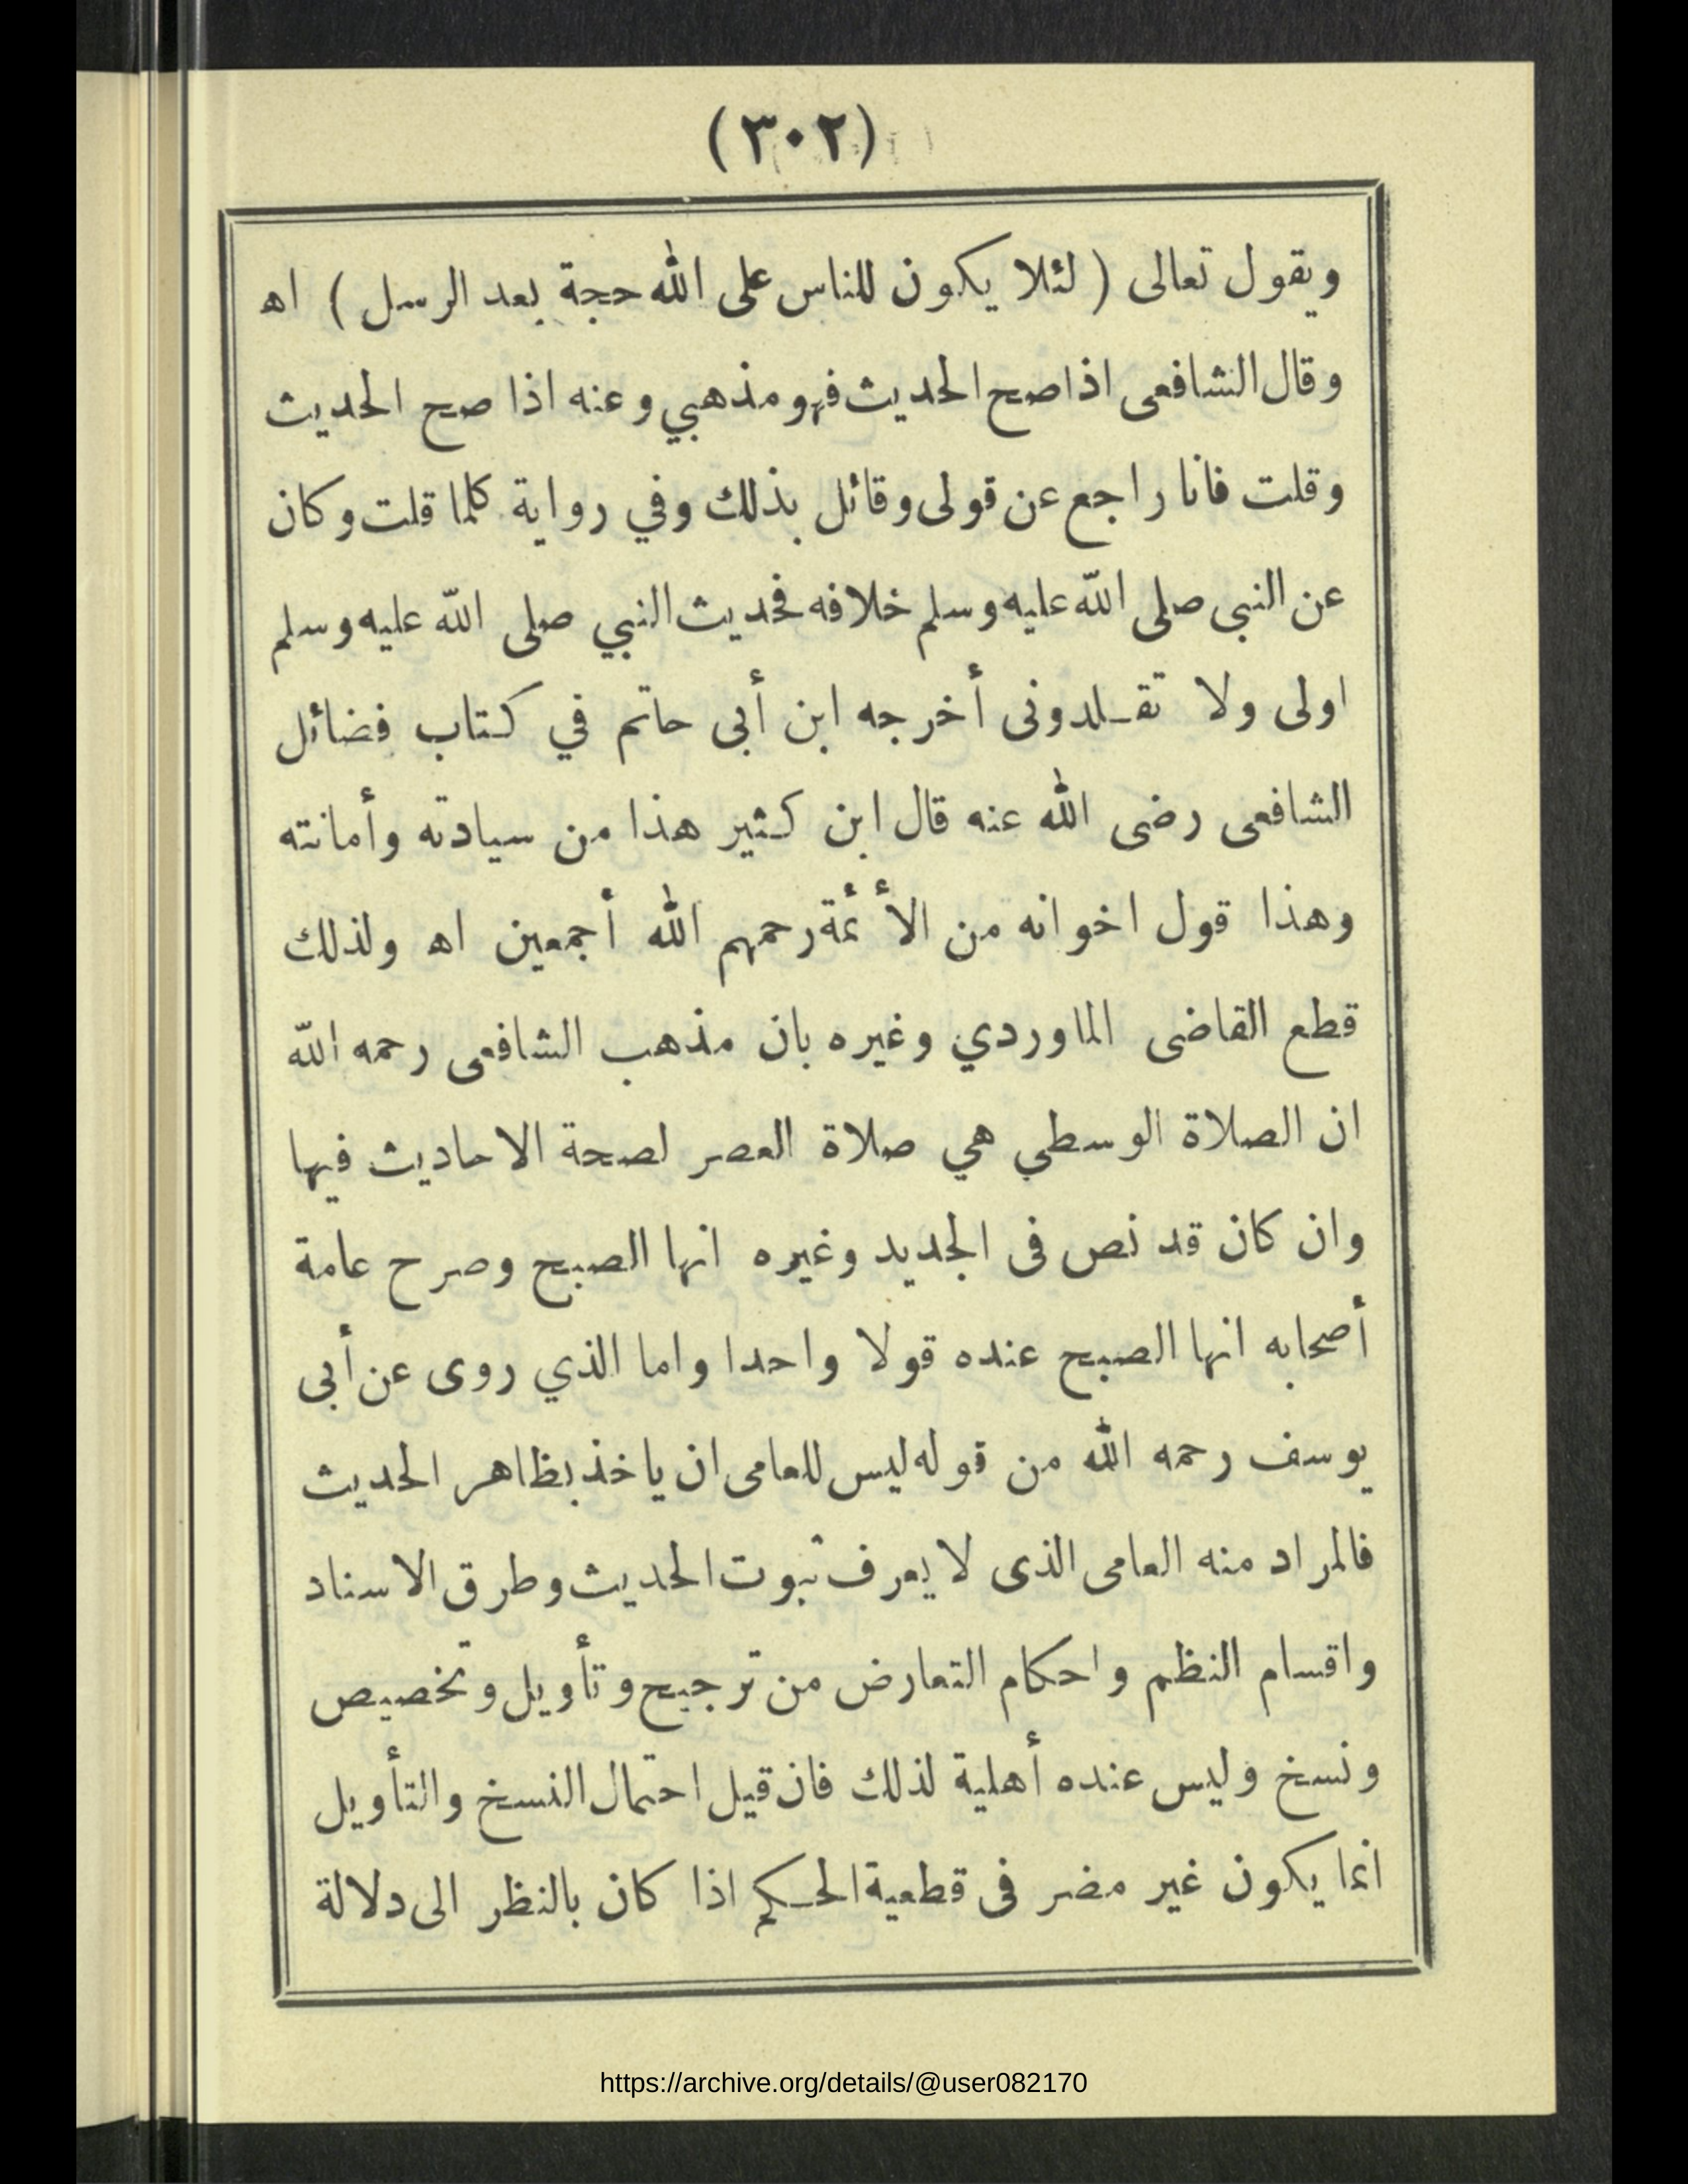 (٣٠٢)
ويقول تعالى ( لئلا يكون للناس على الله حجة بعد الرسل ) اه
وقال الشافعى اذا صح الحديث فهو مذهبي وعنه اذا صح الحديث
وقلت فانا راجع عن قولى وقائل بذلك وفي رواية كلما قلت وكان
عن النبى صلى الله عليه وسلم خلافه فحديث النبي صلى الله عليه وسلم
اولى ولا تقـلدونى أخرجه ابن أبى حاتم في كتاب فضائل
الشافعى رضى الله عنه قال ابن كثير هذا من سيادته وأمانته
وهذا قول اخوانه من الأئمة رحمهم الله أجمعين اه ولذلك
قطع القاضى الماوردي وغيره بان مذهب الشافعى رحمه الله
ان الصلاة الوسطي هي صلاة العصر لصحة الاحاديث فيها
وان كان قد نص فى الجديد وغيره انها الصبح وصرح عامة
أصحابه انها الصبح عنده قولا واحدا واما الذي روى عن أبى
يوسف رحمه الله من قوله ليس للعامى ان ياخذ بظاهر الحديث
فالمراد منه العامى الذى لا يعرف ثبوت الحديث وطرق الاسناد
واقسام النظم واحكام التعارض من ترجيح وتأويل وتخصيص
ونسخ وليس عنده أهلية لذلك فان قيل احتمال النسخ والتأويل
انما يكون غير مضر فى قطعية الحـكم اذا كان بالنظر الى دلالة
https://archive.org/details/@user082170